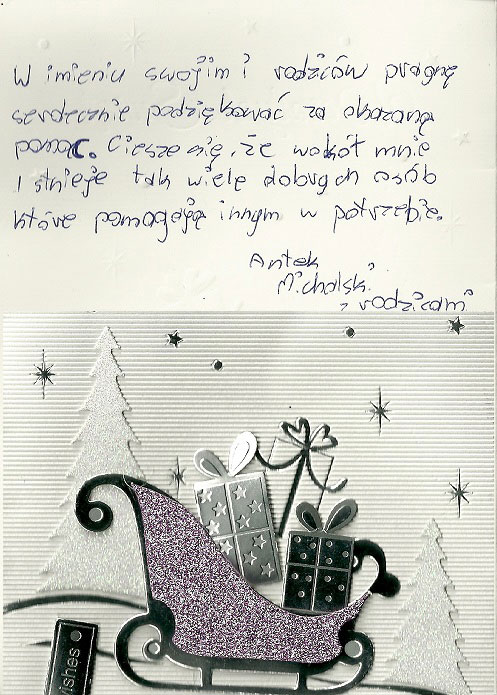 W imieniu swojim i rodziców pragnę
serdecznie podziękować za okazaną
pomoc. Cieszę się, że wokół mnie
istnieje tak wiele dobrych osób
które pomagają innym w potrzebie.
Antek
Michalski
z rodzicami
wishes